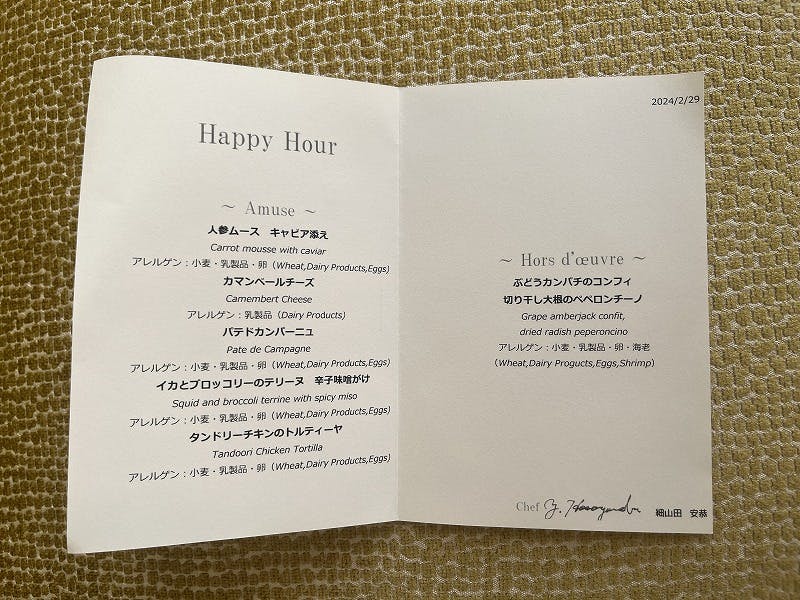 Happy Hour
～ Amuse ～
人参ムース　キャビア添え
Carrot mousse with caviar
アレルゲン：小麦・乳製品・卵（Wheat,Dairy Products,Eggs)
カマンベールチーズ
Camembert Cheese
アレルゲン：乳製品（Dairy Products)
パテドカンパーニュ
Pate de Campagne
アレルゲン：小麦・乳製品・卵（Wheat,Dairy Products,Eggs)
イカとブロッコリーのテリーヌ　辛子味噌がけ
Squid and broccoli terrine with spicy miso
アレルゲン：小麦・乳製品・卵（Wheat,Dairy Products,Eggs)
タンドリーチキンのトルティーヤ
Tandoori Chicken Tortilla
アレルゲン：小麦・乳製品・卵（Wheat,Dairy Products,Eggs)
2024/2/29
～ Hors d'œuvre ～
ぶどうカンパチのコンフィ
切り干し大根のペペロンチーノ
Grape amberjack confit,
dried radish peperoncino
アレルゲン：小麦・乳製品・卵・海老
（Wheat,Dairy Progucts,Eggs,Shrimp）
Chef Y. Hosoyamada 細山田　安恭